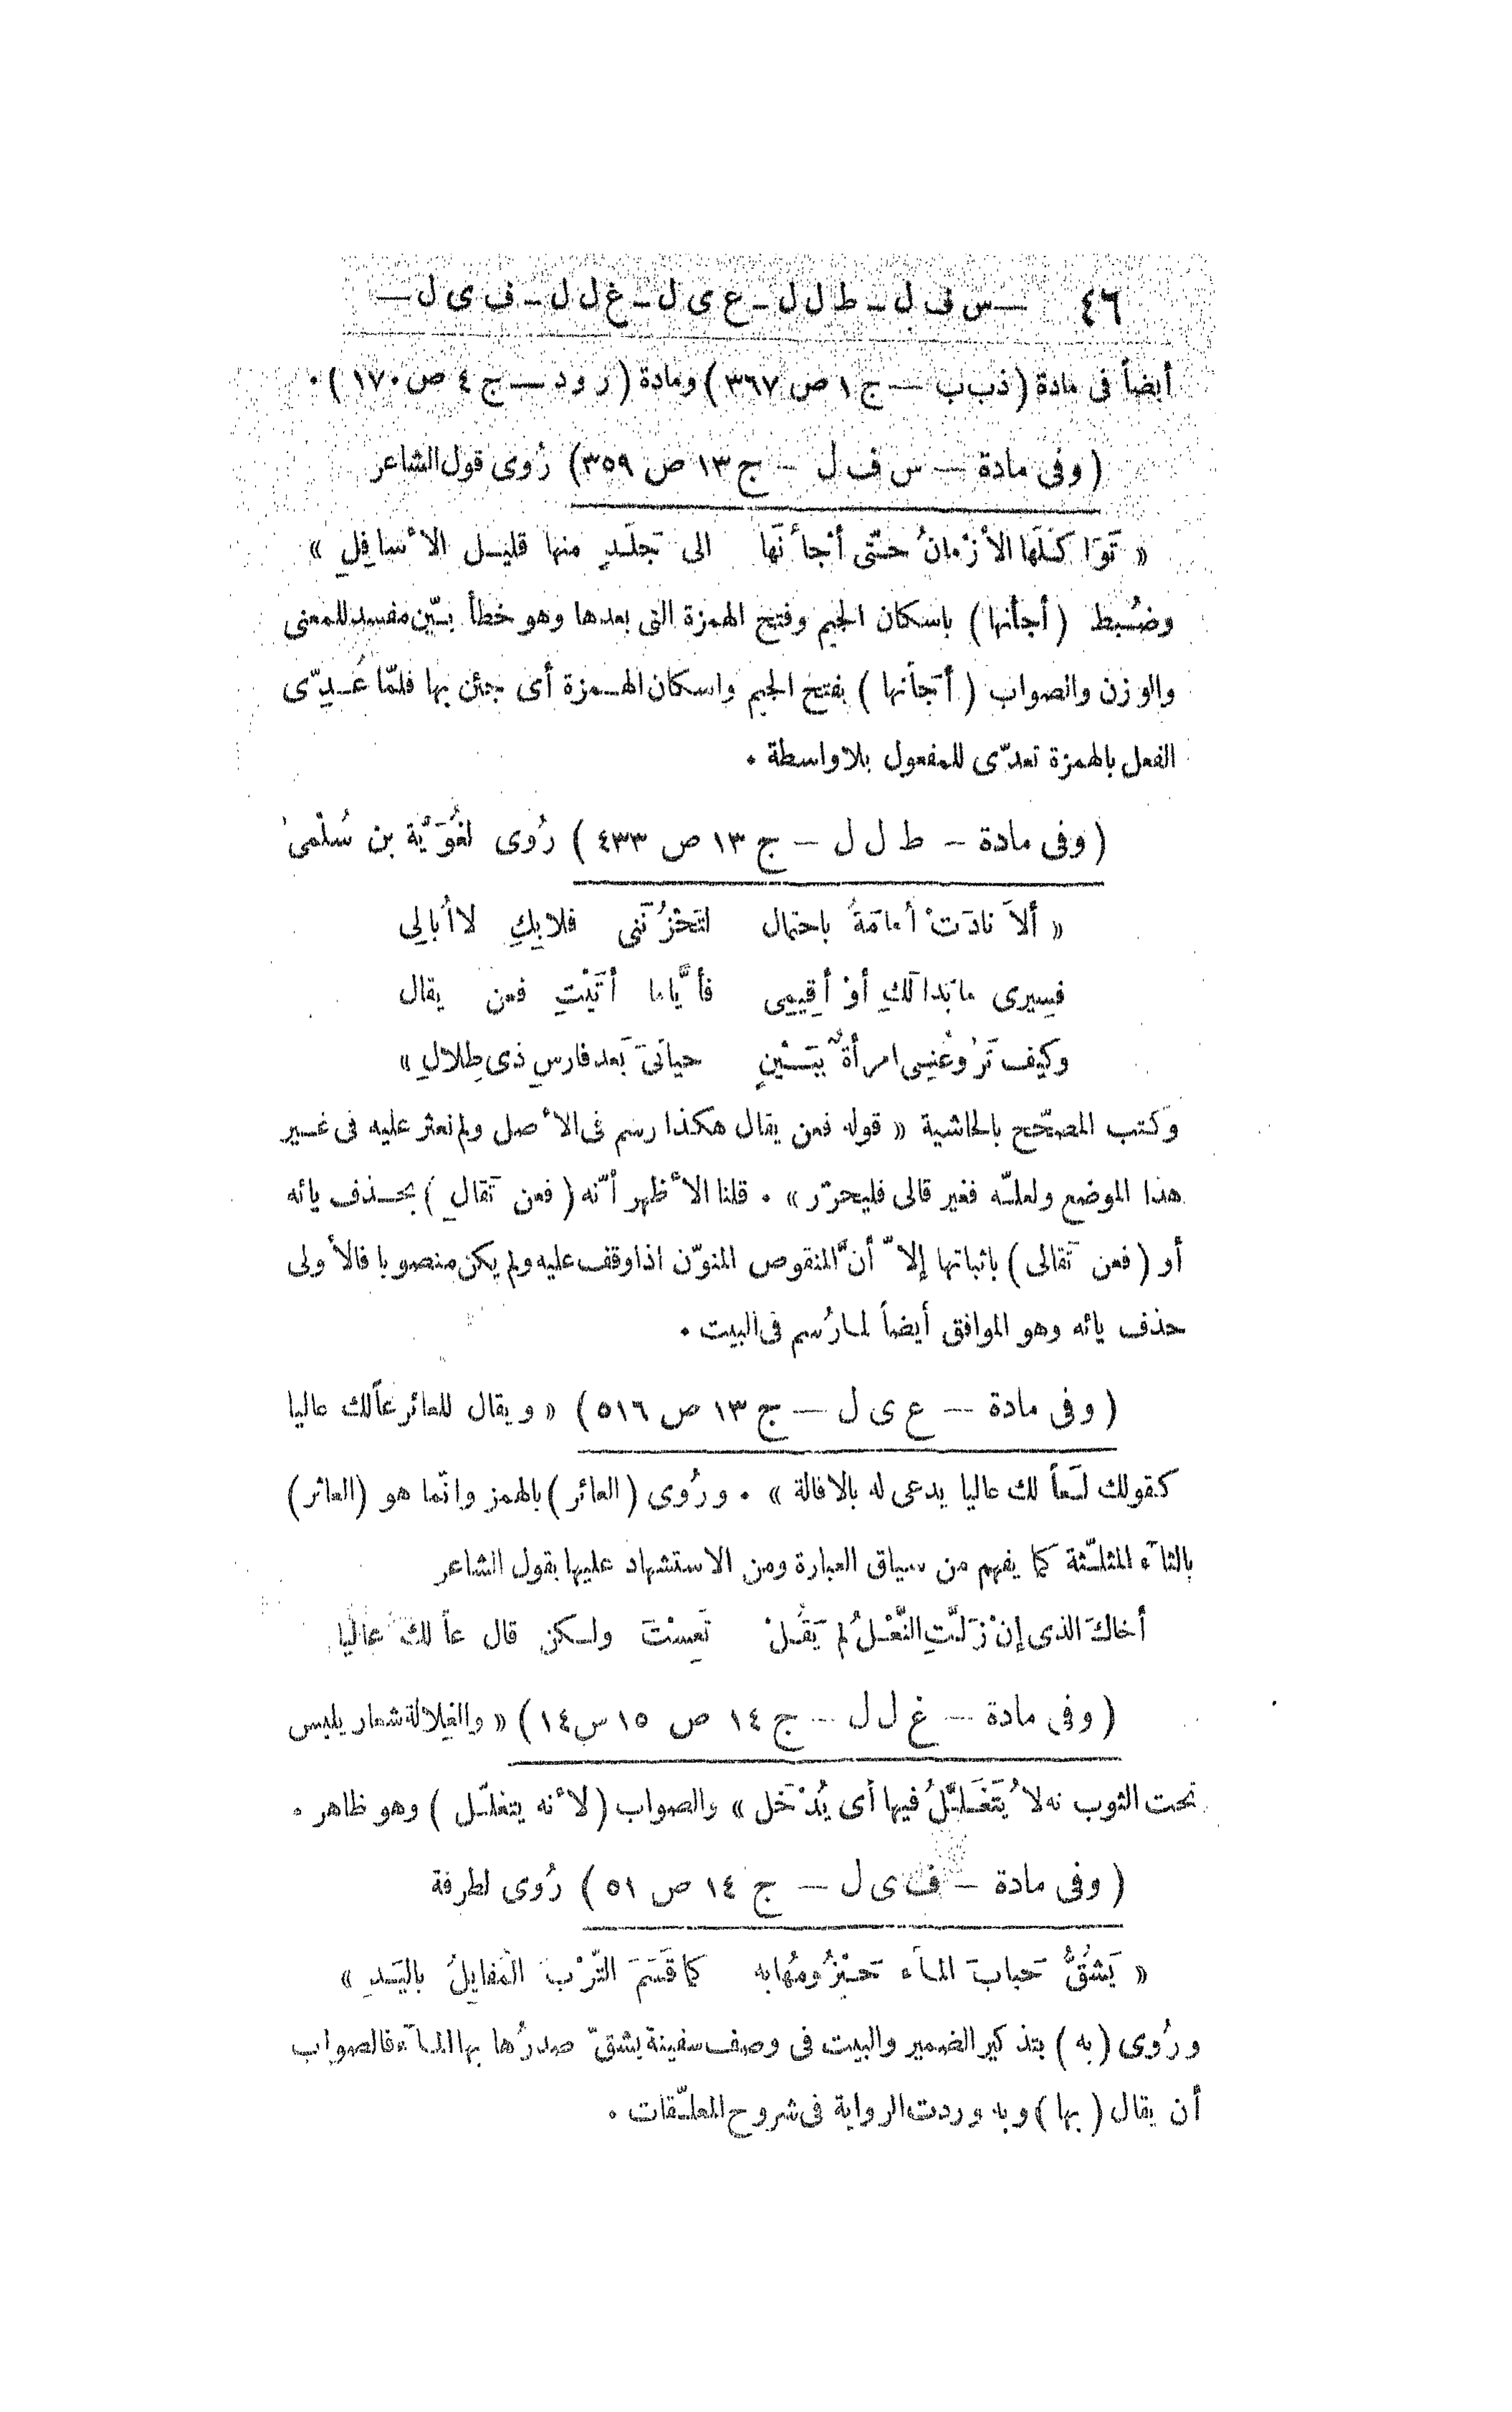 ٤٦ —س ف ل – ط ل ل – ع ى ل – غ ل ل – ف ى ل—
أيضاً فى مادة (ذب ب — ج ١ ص ٣٦٧) ومادة (ر ود — ج ٤ ص ١٧٠) .
(وفى مادة — س ف ل – ج ١٣ ص ٣٥٩) رُوى قول الشاعر
« تَوَا كَلَها الأزْمانُ حتّى أجْأَنَها الى جَلَدٍ منها قليل الأسافِلِ »
وضُبط (أجأنها) باسكان الجيم وفتح الهمزة التى بعدها وهو خطأ بيّن مفسد للمعنى
والوزن والصواب (أَجَأنها) بفتح الجيم واسكان الهمزة أى جئن بها فلمّا عُدِّى
الفعل بالهمزة تعدّى للمفعول بلا واسطة .
(وفى مادة – ط ل ل – ج ١٣ ص ٤٣٣) رُوى لغُوَيّة بن سُلْمى
« ألاَ نادَتْ أمامَةُ باحتمال لتَحْزُنَنى فلابِكِ لا أُبالِى
فسِيرى ما بَدا لَكِ أوْ أقِيمِى فأيَّاما أتَيْتِ فعن يقال
وكيف تَرُوعُنِى امرأةٌ بِبَيْنٍ حياتىَ بَعد فارسِ ذى طِلالِ »
وكتب المصحّح بالحاشية « قوله فعن يقال هكذا رسم فى الأصل ولم نعثر عليه فى غير
هذا الموضع ولعلّه فغير قالى فليحرّر » . قلنا الأظهر أنّه (فعن تَقالٍ) بحذف يائه
أو (فعن تَقالى) باثباتها إلاّ أنّ المنقوص المنوّن اذا وقف عليه ولم يكن منصوبا فالأولى
حذف يائه وهو الموافق أيضاً لما رُسم فى البيت .
(وفى مادة — ع ى ل — ج ١٣ ص ٥١٦) « ويقال للعائر عاً لك عاليا
كقولك لَعاً لك عاليا يدعى له بالاقالة » . ورُوى (العائر) بالهمز وانّما هو (العاثر)
بالثاء المثلّثة كما يفهم من سياق العبارة ومن الاستشهاد عليها بقول الشاعر
أخاكَ الذى إنْ زَلَّتِ النَّعْلُ لم يَقُلْ تَعِسْتَ ولكن قال عاً لك عاليا
(وفى مادة — غ ل ل – ج ١٤ ص ١٥ س ١٤) « والغِلالة شعار يلبس
تحت الثوب نه لا يُتَغَلَّلُ فيها أى يُدْخَل » والصواب (لأنه يتغلّل) وهو ظاهر .
(وفى مادة – ف ى ل — ج ١٤ ص ٥١) رُوى لطرفة
« يَشُقُّ حَبابَ الماء حَيْزُومُها به كما قَسَمَ التّرْبَ المُفايِلُ باليَدِ »
ورُوى (به) بتذكير الضمير والبيت فى وصف سفينة يشقّ صدرُها بها الماء فالصواب
أن يقال (بها) وبه وردت الرواية فى شروح المعلّقات .